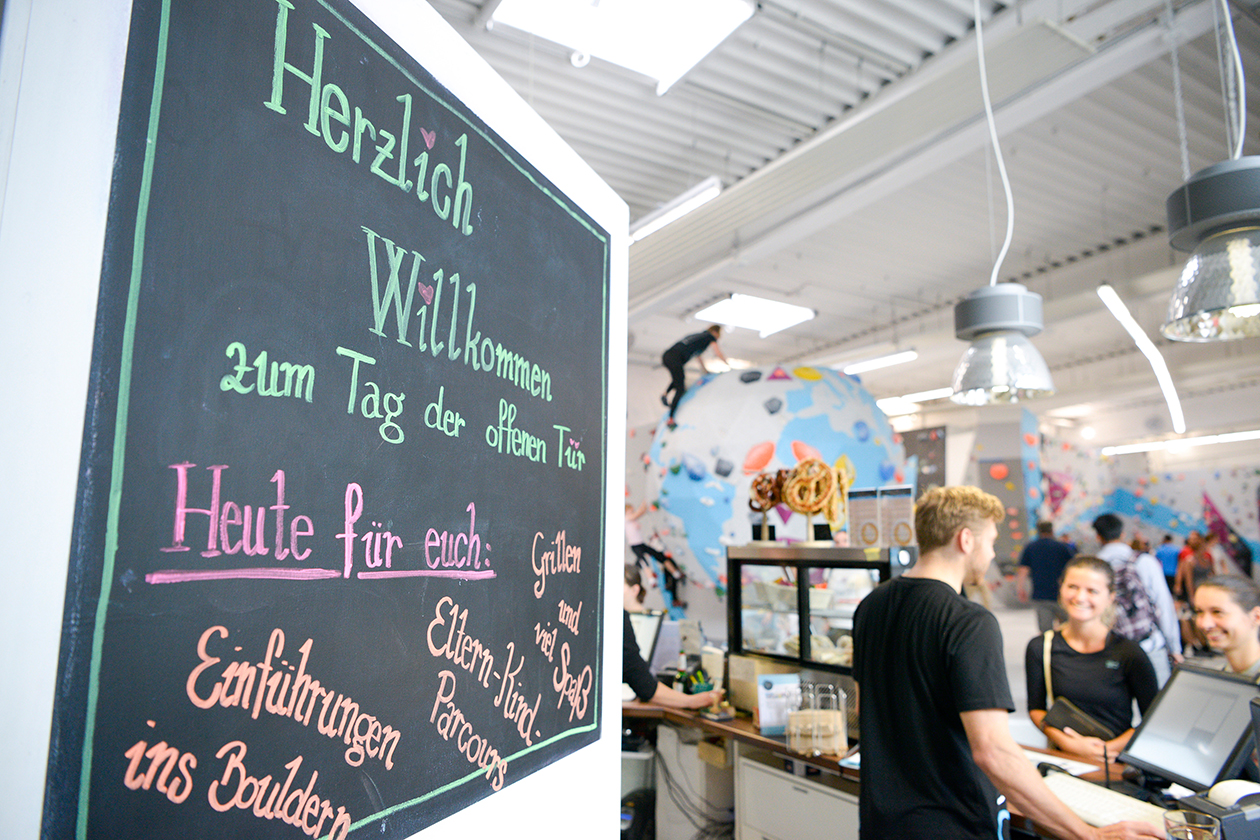 Herzlich
Willkommen
zum Tag der offenen Tür
Heute für euch:
Einführungen
ins Bouldern
Eltern-Kind-
Parcours
Grillen
und
viel Spaß